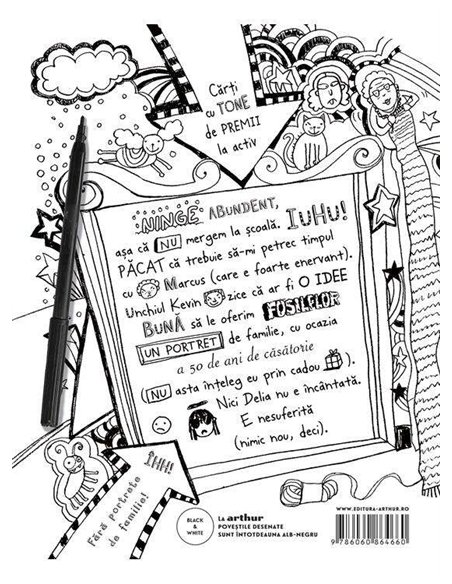 Cărți
cu TONE
de PREMII
la activ
NINGE ABUNDENT,
așa că NU mergem la școală. IUHU!
PĂCAT că trebuie să-mi petrec timpul
cu MARCUS (care e foarte enervant).
Unchiul Kevin zice că ar fi O IDEE
BUNĂ să le oferim FOSILELOR
UN PORTRET de familie, cu ocazia
a 50 de ani de căsătorie
(NU asta înțeleg eu prin cadou).
Nici Delia nu e încântată.
E nesuferită
(nimic nou, deci).
IHH!
Fără portrete
de familie!
BLACK
&
WHITE
La arthur
POVEȘTILE DESENATE
SUNT ÎNTOTDEAUNA ALB-NEGRU
WWW.EDITURA-ARTHUR.RO
9786060864660